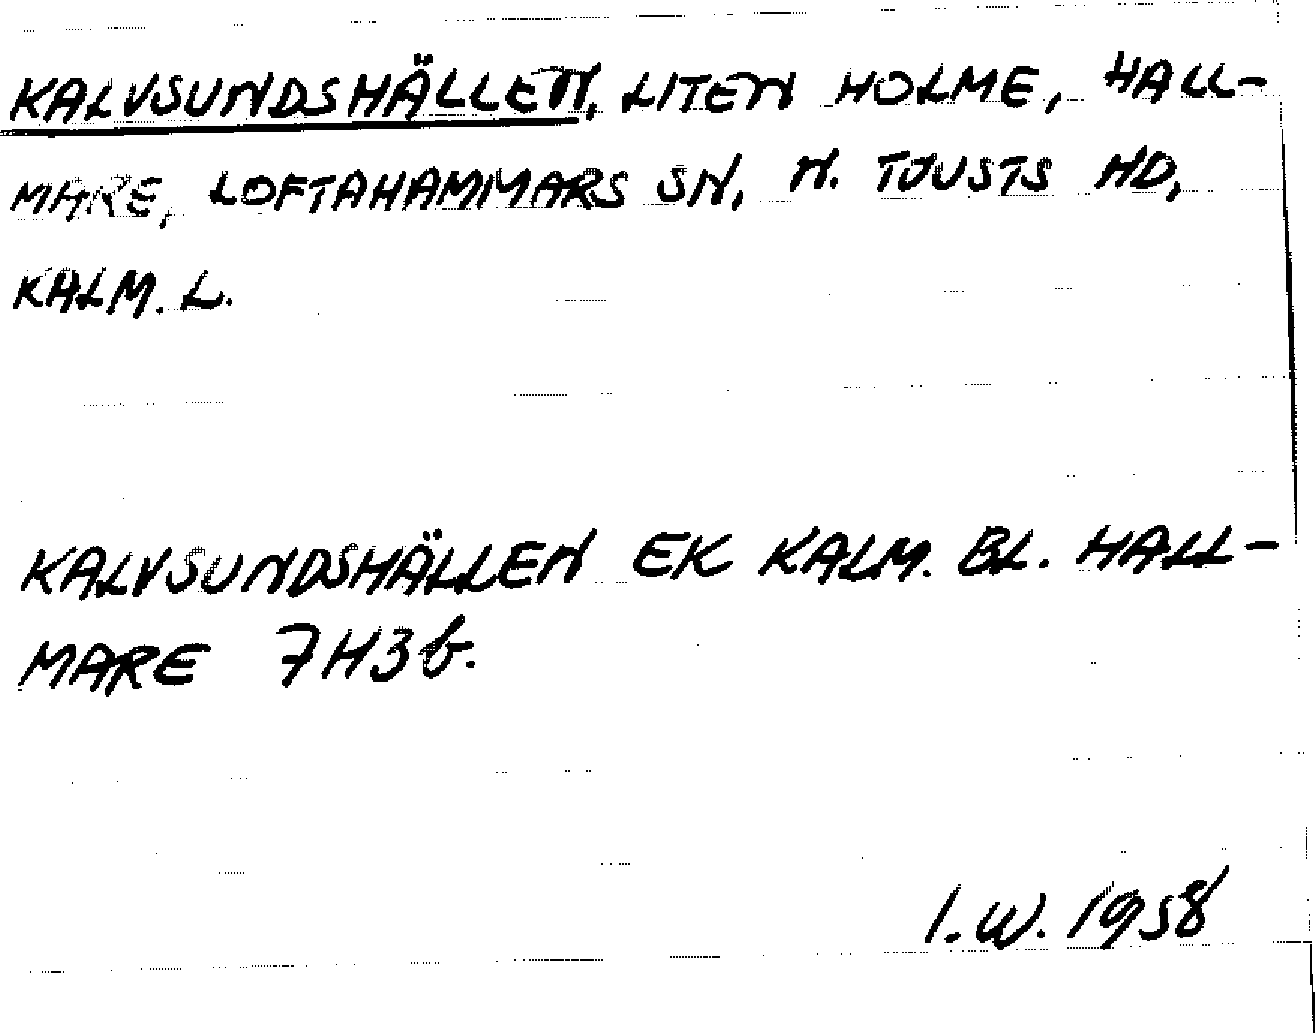 KALVSUNDSHÄLLEN, LITEN HOLME, HALL-
MARE, LOFTAHAMMARS SN, N. TJUSTS HD,
KALM. L.
KALVSUNDSHÄLLEN EK KALM. BL. HALL-
MARE 7H3b.
I.W. 1958